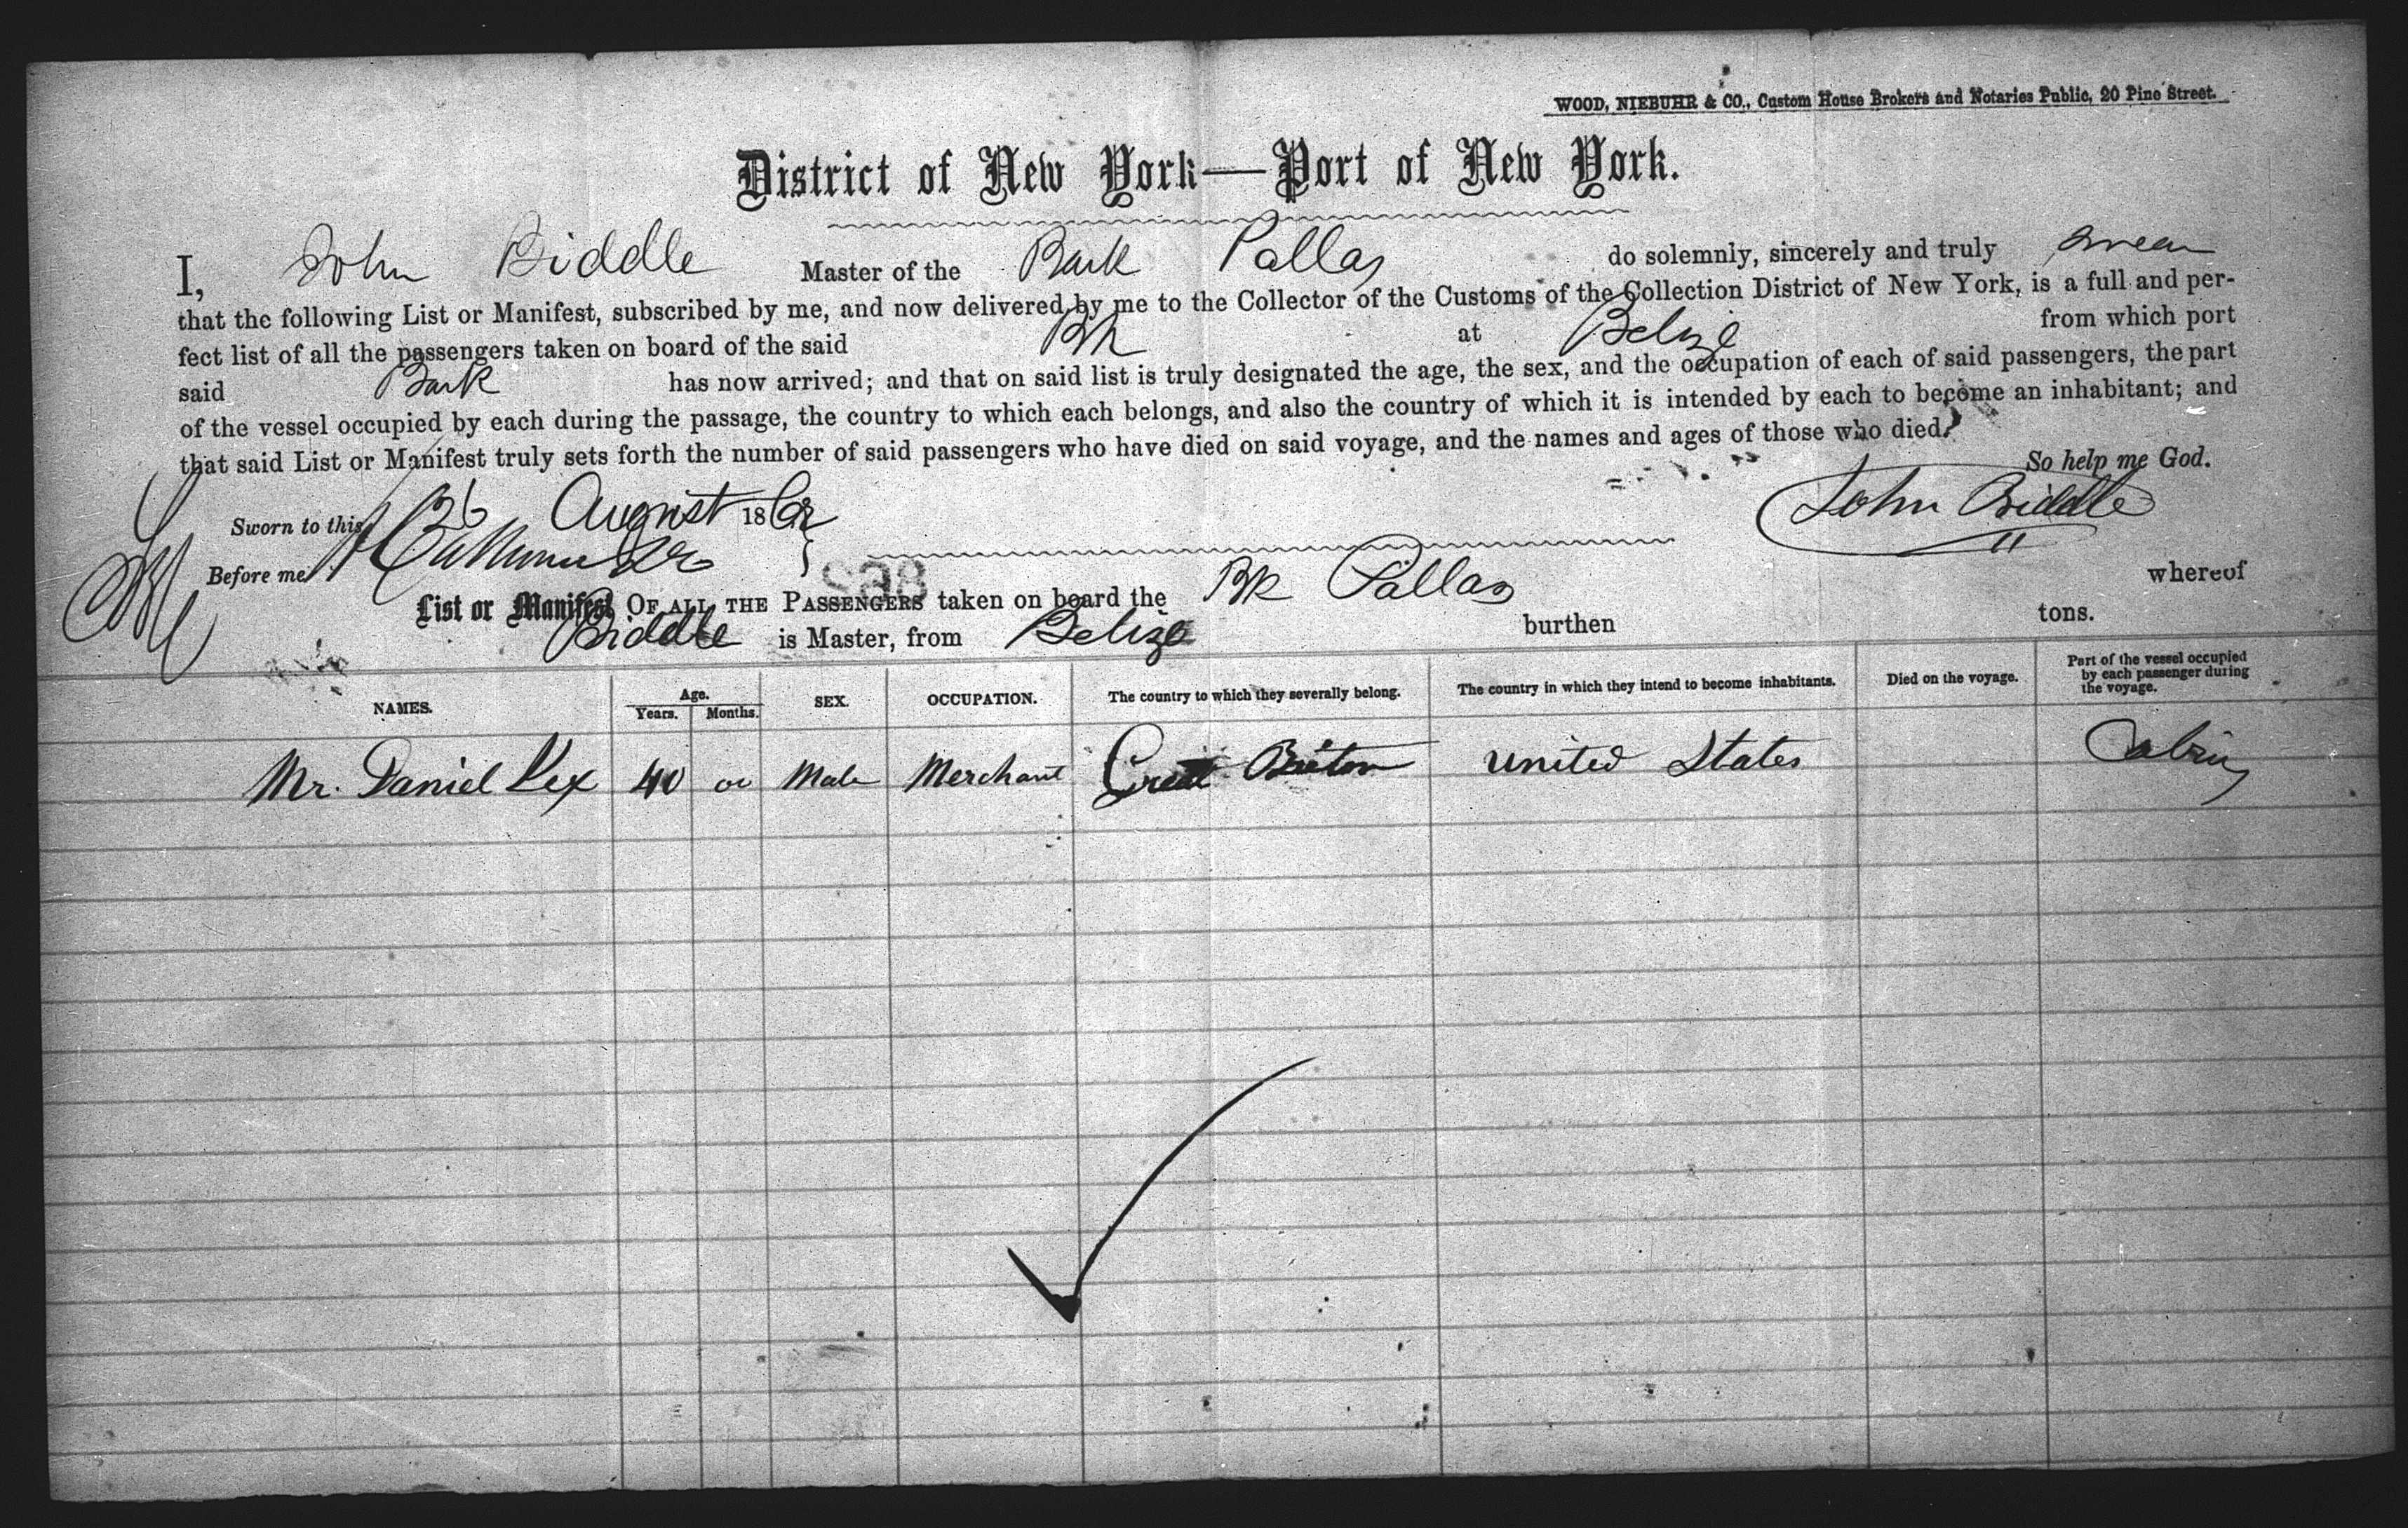 WOOD, NIEBUHR & CO., Custom House Brokers and Notaries Public, 20 Pine Street.
District of New York—Port of New York.
I, John Biddle Master of the Bark Pallas do solemnly, sincerely and truly swear
that the following List or Manifest, subscribed by me, and now delivered by me to the Collector of the Customs of the Collection District of New York, is a full and per-
fect list of all the passengers taken on board of the said Bk at Belize from which port
said Bark has now arrived; and that on said list is truly designated the age, the sex, and the occupation of each of said passengers, the part
of the vessel occupied by each during the passage, the country to which each belongs, and also the country of which it is intended by each to become an inhabitant; and
that said List or Manifest truly sets forth the number of said passengers who have died on said voyage, and the names and ages of those who died.
So help me God.
Sworn to this 26 August 1862
John Biddle
Before me
898
List or Manifest OF ALL THE PASSENGERS taken on board the Bk Pallas whereof
Biddle is Master, from Belize burthen tons.
NAMES. Age. Years. Months. SEX. OCCUPATION. The country to which they severally belong. The country in which they intend to become inhabitants. Died on the voyage. Part of the vessel occupied by each passenger during the voyage.
Mr. Daniel 40 Male Merchant Great Briton United States Cabin